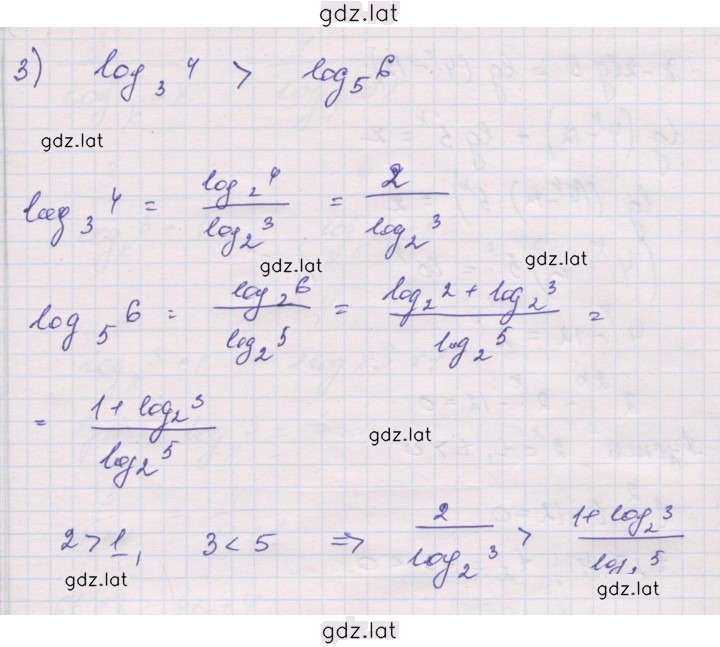 gdz.lat
3) log₃4 > log₅6
gdz.lat
log₃4 = log₂4 / log₂3 = 2 / log₂3
gdz.lat
gdz.lat
log₅6 = log₂6 / log₂5 = (log₂2 + log₂3) / log₂5 =
= (1 + log₂3) / log₂5
gdz.lat
2 > 1, 3 < 5 ⇒ 2 / log₂3 > (1 + log₂3) / log₂5
gdz.lat
gdz.lat
gdz.lat